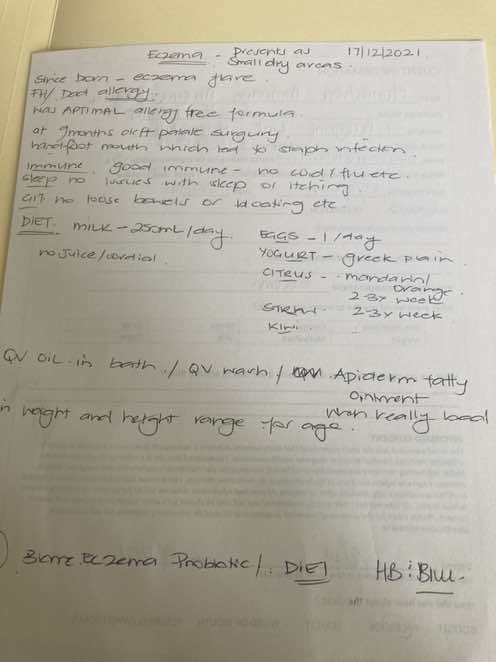 Eczema - Presents as 17/12/2021
small dry areas.
Since born - eczema flare.
FH/ Dad allergy.
was APTIMAL allergy free formula.
at 9months cleft palate surgury.
hand foot mouth which led to staph infection.
Immune. good immune - no cold/flu etc.
Sleep no issues with sleep or itching.
GIT no loose bowels or bloating etc.
DIET. milk - 250mL/day. EGGS - 1/day
no juice/cordial. YOGURT - greek plain.
CITRUS - mandarin/
orange.
2-3x week
STRAW. 2-3x week
KIWI
QV OIL in bath / QV wash / Apiderm fatty
ointment
in weight and height range for age. when really bad
Biome Eczema Probiotic /. DIET HB: